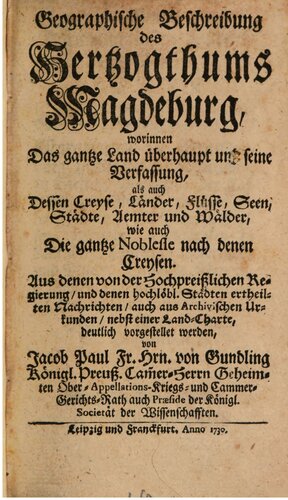 Geographische Beschreibung
des
Hertzogthums
Magdeburg,
worinnen
Das gantze Land überhaupt und seine
Verfassung,
als auch
Dessen Creyse, Länder, Flüsse, Seen,
Städte, Aemter und Wälder,
wie auch
Die gantze Noblesse nach denen
Creysen.
Aus denen von der Hochpreißlichen Re-
gierung/ und denen hochlöbl. Städten ertheil-
ten Nachrichten/ auch aus Archivischen Ur-
kunden/ nebst einer Land-Charte,
deutlich vorgestellet werden,
von
Jacob Paul Fr. Hrn. von Gundling
Königl. Preuß. Cam̄er-Herrn Geheim-
ten Ober-Appellations-Kriegs- und Cammer-
Gerichts-Rath auch Præside der Königl.
Societät der Wissenschafften.
Leipzig und Franckfurt. Anno 1730.